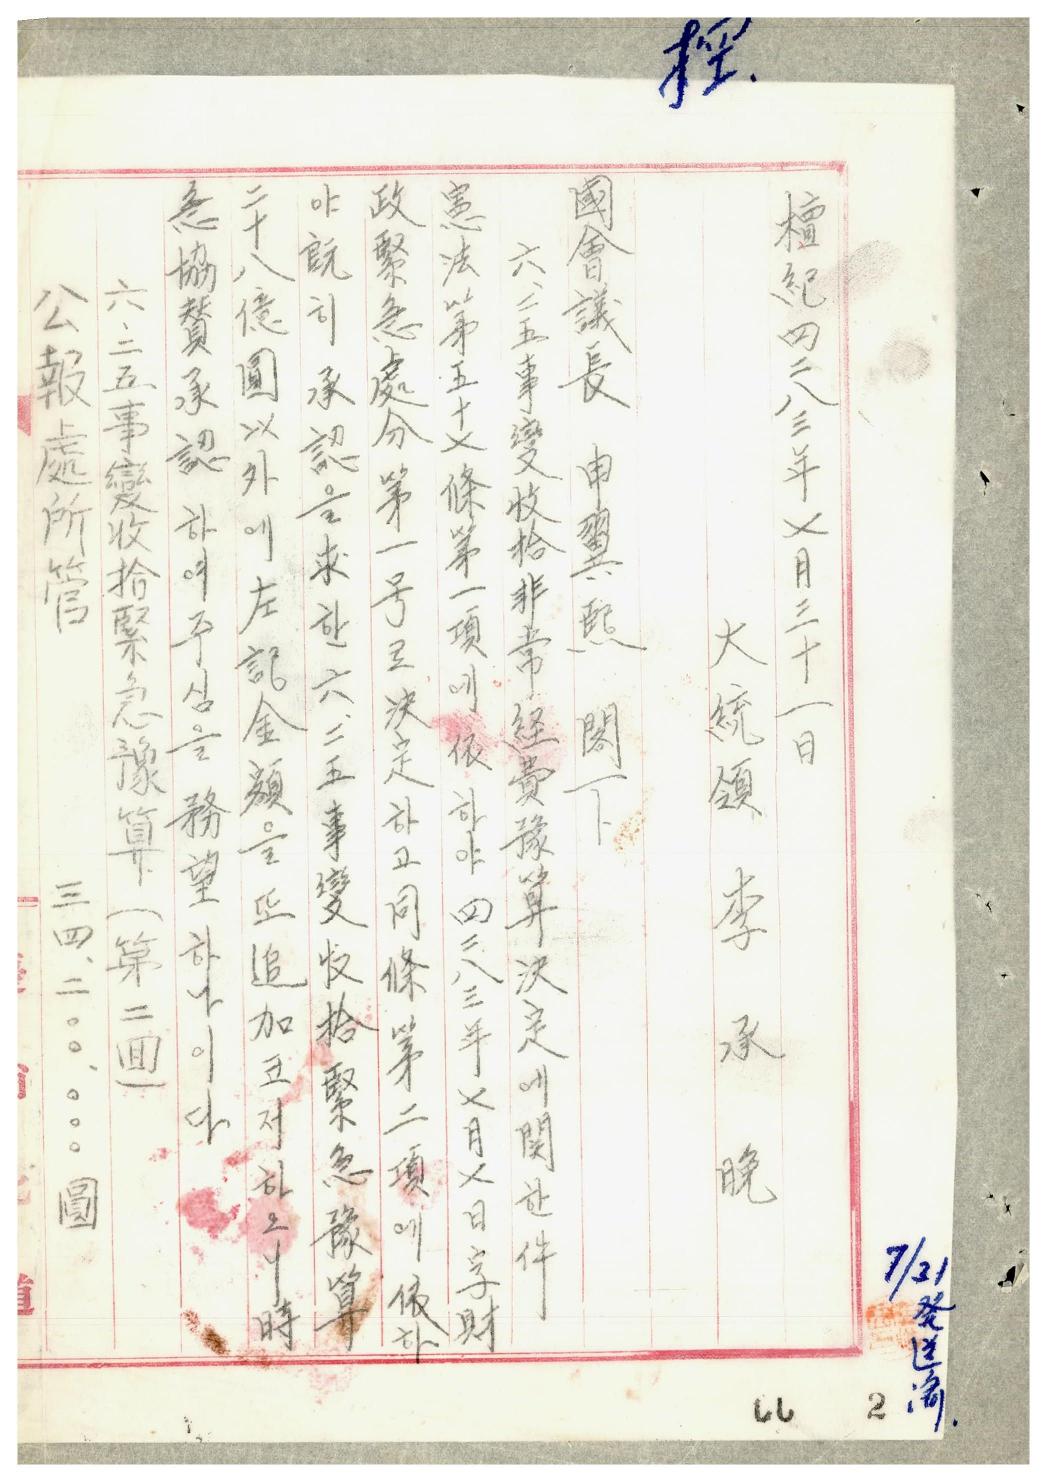 檀紀四二八三年七月三十一日
大統領 李承晩
國會議長 申翼熙 閣下
六.二五事變收拾非常経費豫算決定에関한件
憲法第五十七條第一項에依하야四二八三年七月七日字財
政緊急處分第一号로決定하고同條第二項에依하
야旣히承認을求한六.二五事變收拾緊急豫算
二十八億圓以外에左記金額을또追加코저하오니時
急協賛承認하여주심을務望하나이다
六.二五事變收拾緊急豫算(第二囬)
公報處所管 三四、二〇〇、〇〇〇圓
7/31 発送済.
2